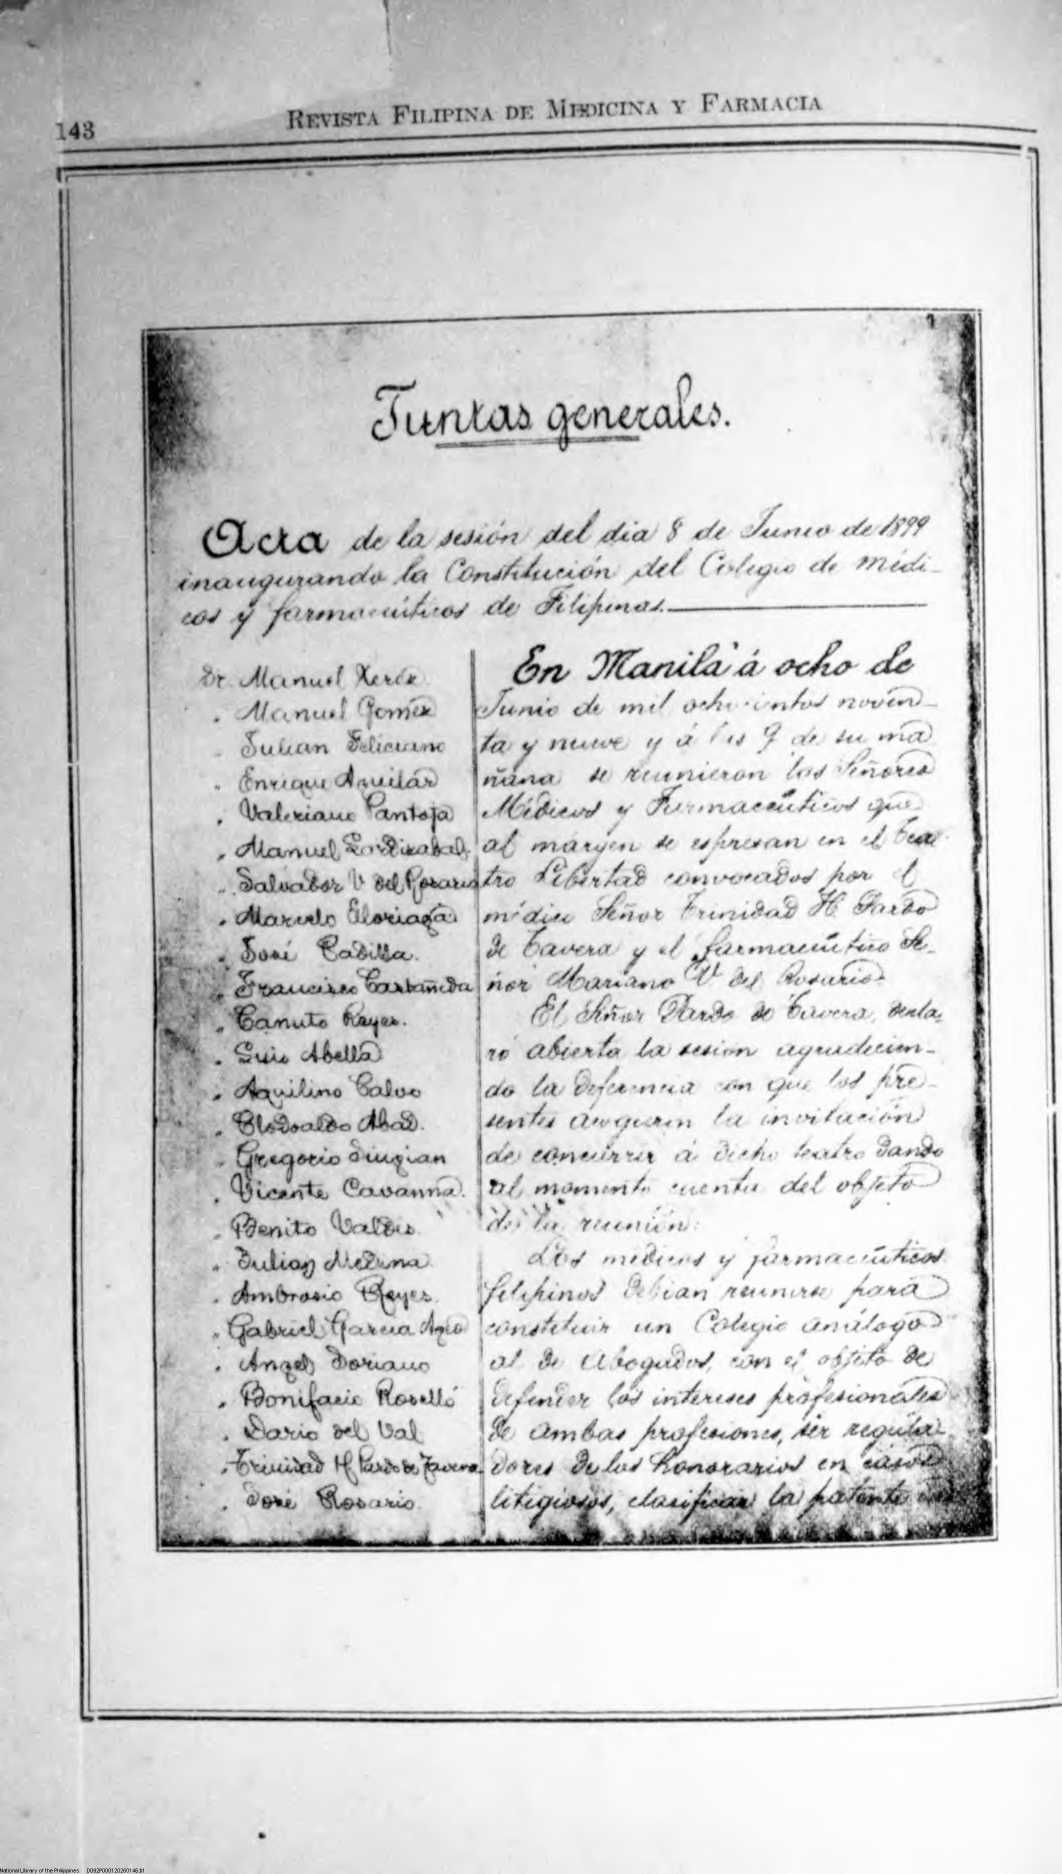 143
REVISTA FILIPINA DE MEDICINA Y FARMACIA
1
Juntas generales.
Acta de la sesión del dia 8 de Junio de 1899
inaugurando la Constitución del Colegio de médi-
cos y farmacéuticos de Filipinas.
Dr. Manuel Xeréz
" Manuel Gomez
" Julian Feliciano
" Enrique Aguilar
" Valeriano Pantoja
" Manuel Gordizabal
" Salvador V. del Rosario
" Marcelo Eloriaga
" José Padilla.
" Francisco Castañeda
" Canuto Reyes.
" Luis Abella
" Aquilino Calvo
" Clodoaldo Abad.
" Gregorio Singian
" Vicente Cavanna.
" Benito Valdes.
" Julian Medina
" Ambrosio Reyes.
" Gabriel Garcia Ageo
" Angel Soriano
" Bonifacio Roselló
" Dario del Val
" Trinidad H Pardo de Tavera
" José Rosario.
En Manila á ocho de
Junio de mil ochocientos noven-
ta y nueve y á las 9 de su ma
ñana se reunieron los Señores
Médicos y Farmacéuticos que
al márgen se espresan en el Tea-
tro Libertad convocados por el
médico Señor Trinidad H. Pardo
de Tavera y el farmacéutico Se-
ñor Mariano V. del Rosario.
El Señor Pardo de Tavera, decla-
ró abierta la sesion agradecien-
do la deferencia con que los pre-
sentes acogieron la invitación
de concurrir á dicho teatro dando
al momento cuenta del objeto
de la reunión.
Los médicos y farmacéuticos
filipinos debian reunirse para
constituir un Colegio análogo
al de Abogados, con el objeto de
defender los intereses profesionales
de ambas profesiones, ser regula-
dores de los honorarios en casos
litigiosos, clasificar la patente
National Library of the Philippines